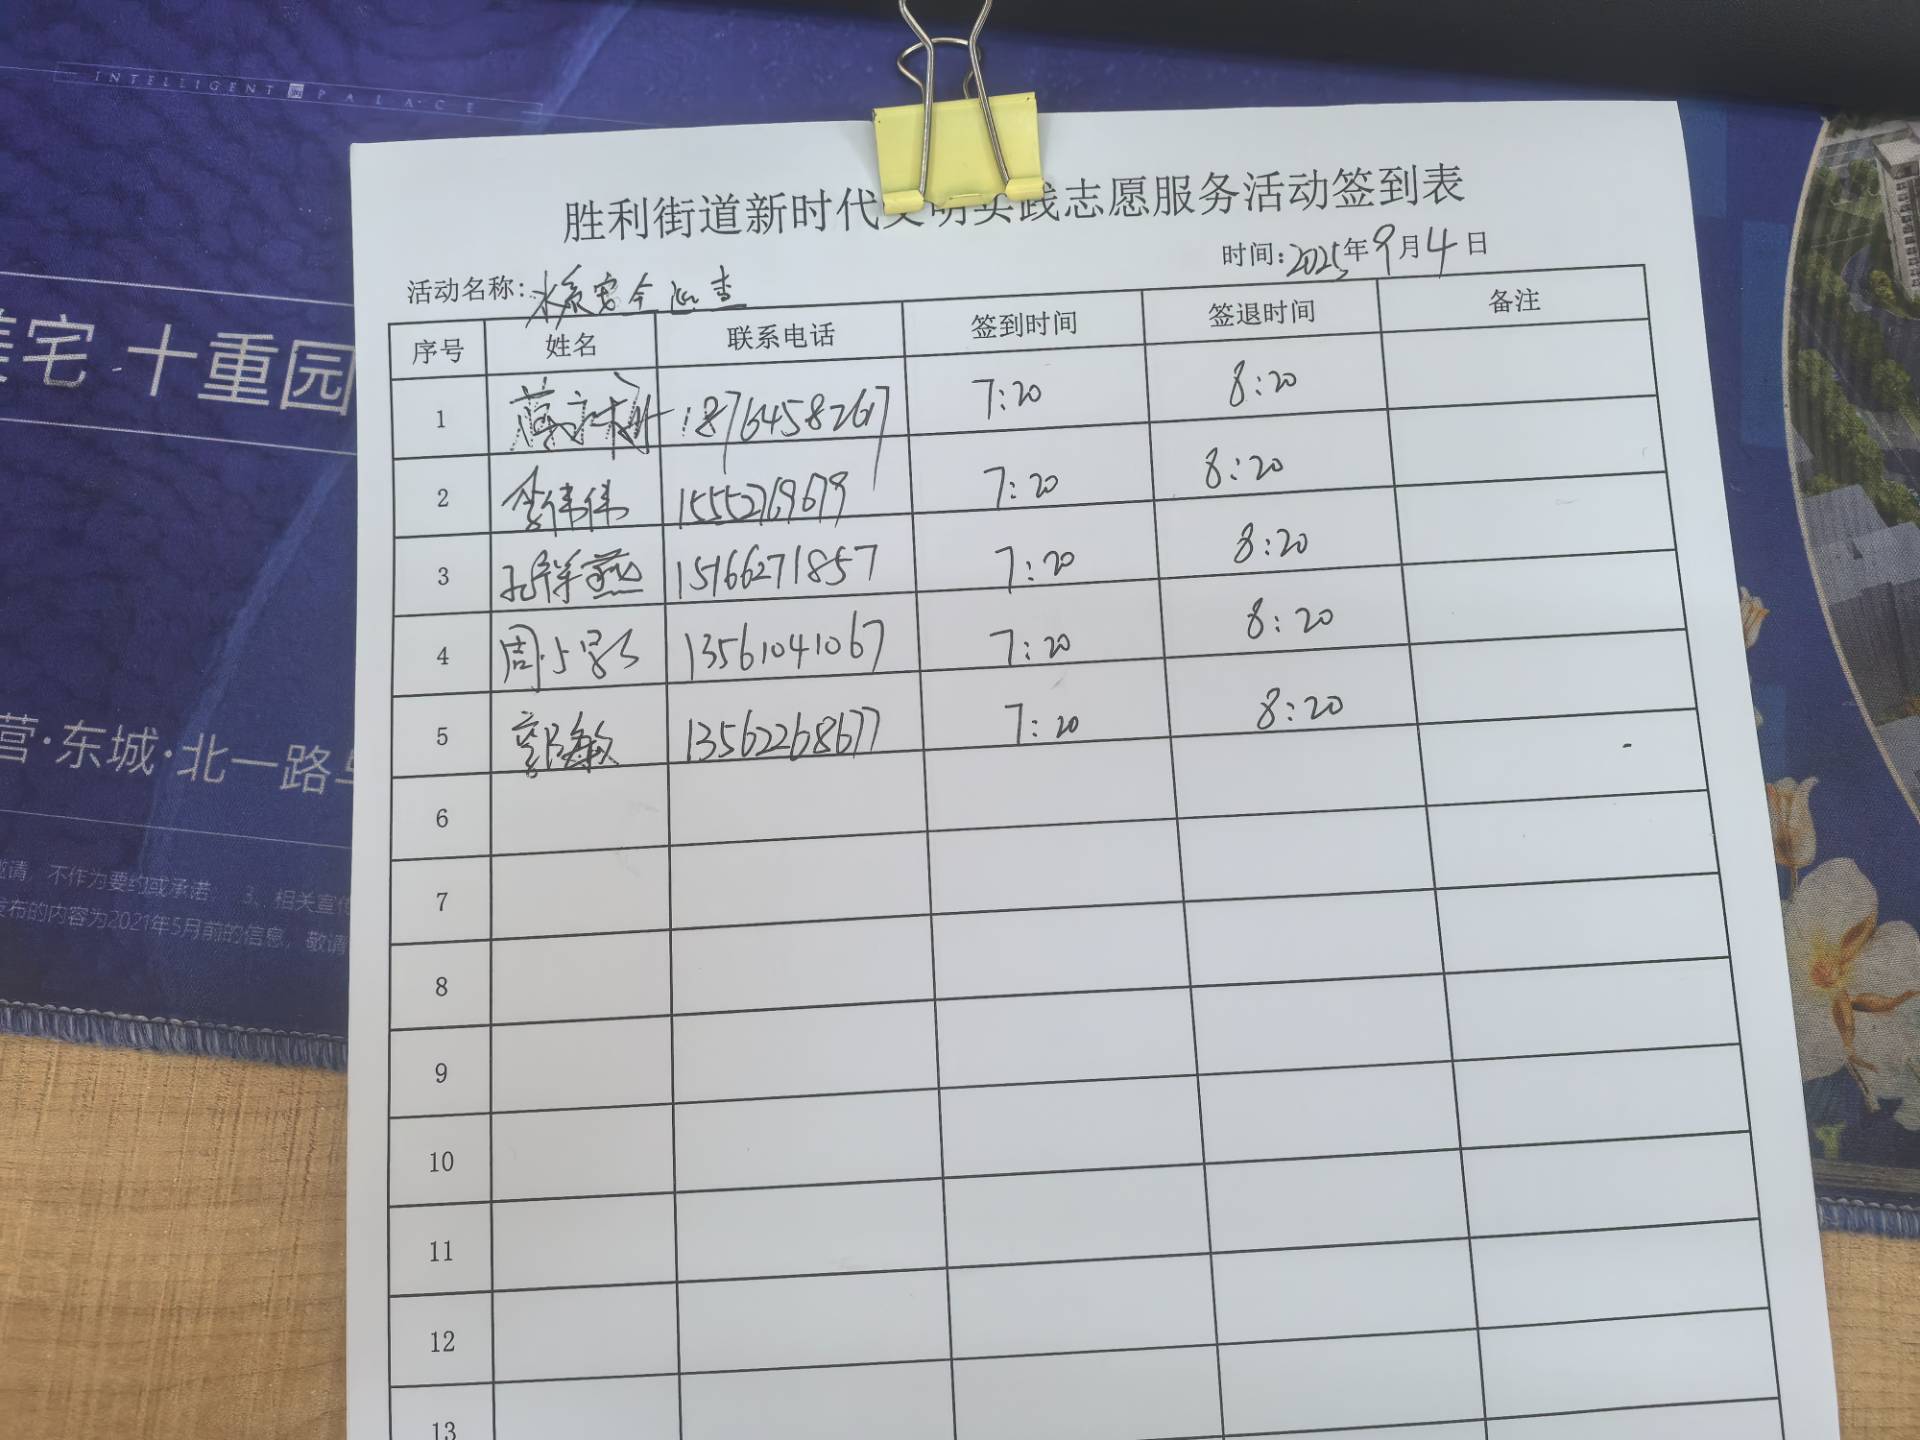 INTELLIGENT PALACE
宅 十重园
营·东城·北一路
邀请,不作为要约或承诺; 3、相关宣传
发布的内容为2021年5月前的信息,敬请
胜利街道新时代文明实践志愿服务活动签到表
时间:2025年9月4日
活动名称:水系安全巡查
序号 姓名 联系电话 签到时间 签退时间 备注
1 18764582617 7:20 8:20
2 李伟伟 15552719679 7:20 8:20
3 孔祥燕 15166271857 7:20 8:20
4 周 13561041067 7:20 8:20
5 郭敏 13562268677 7:20 8:20
6
7
8
9
10
11
12
13